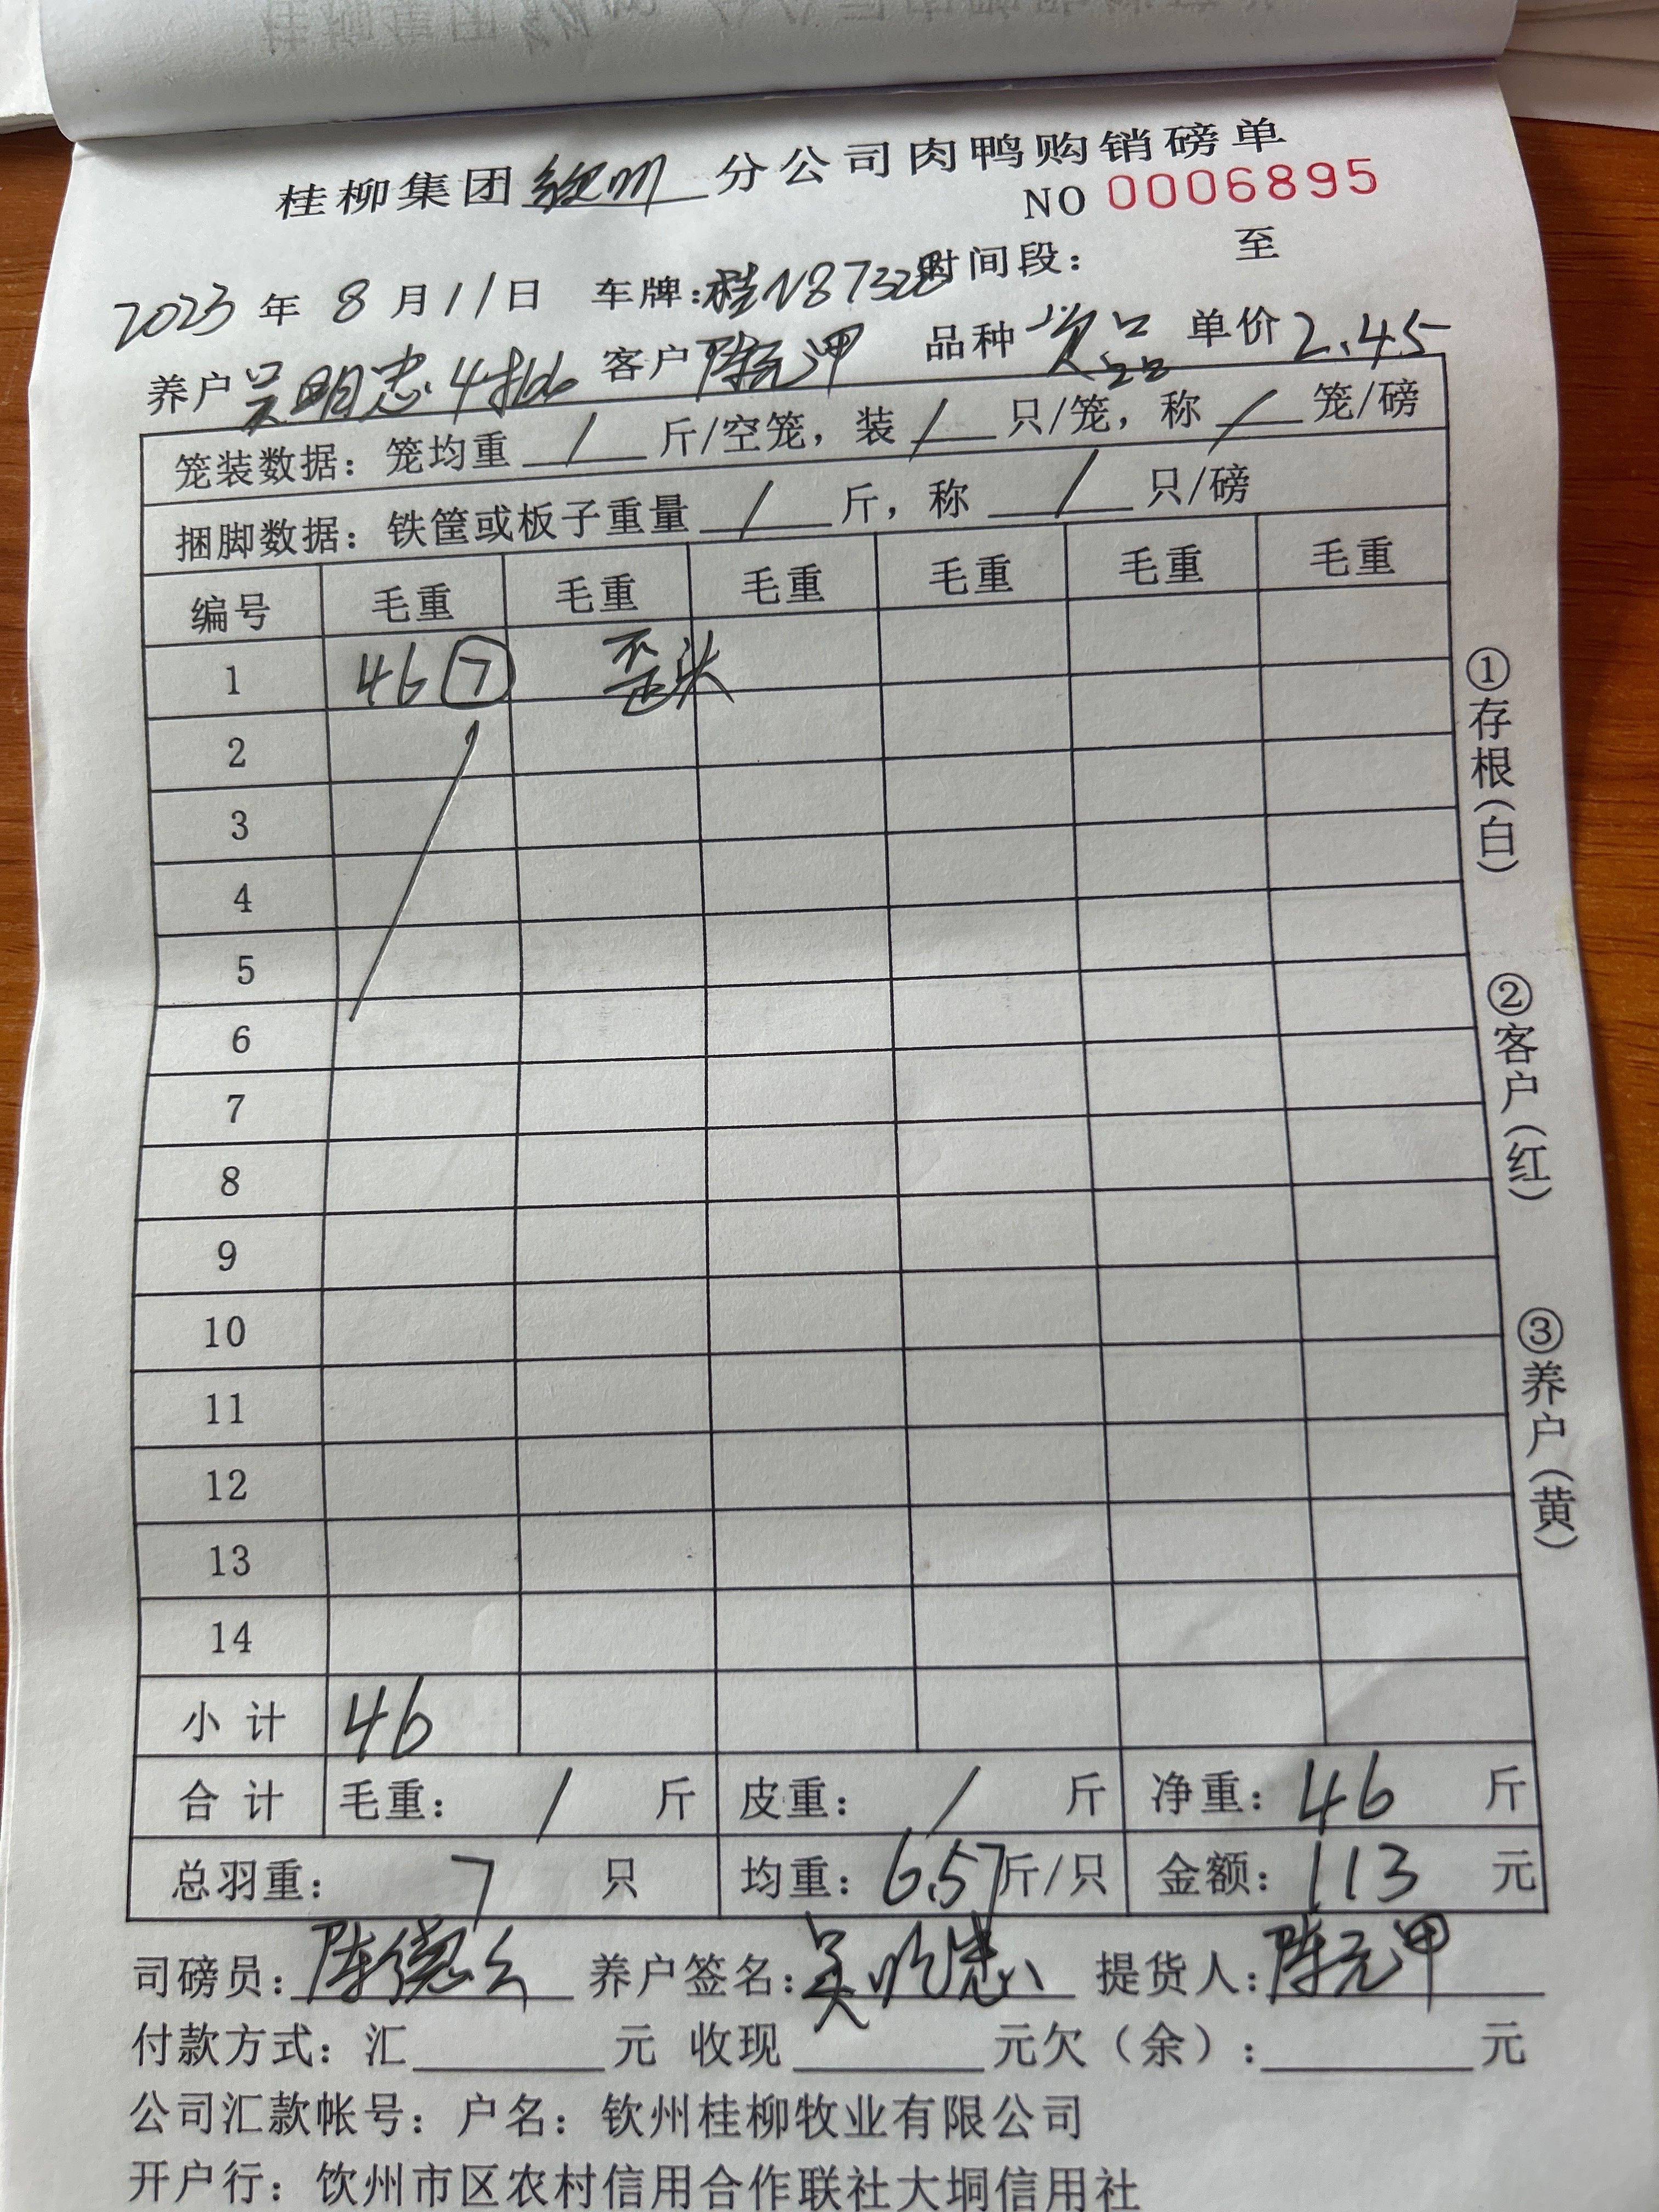 桂柳集团钦州分公司肉鸭购销磅单
NO 0006895
2023年8月11日 车牌:桂N87328 时间段: 至
养户吴明忠.4批 客户陈元甲 品种 单价2.45
笼装数据:笼均重 / 斤/空笼,装 / 只/笼,称 / 笼/磅
捆脚数据:铁筐或板子重量 / 斤,称 / 只/磅
编号 毛重 毛重 毛重 毛重 毛重 毛重
1 46 ⑦ 歪头
2
3
4
5
6
7
8
9
10
11
12
13
14
小计 46
合计 毛重: / 斤 皮重: / 斤 净重:46 斤
总羽重: 7 只 均重:6.57斤/只 金额:113 元
司磅员:陈德 养户签名:吴明忠 提货人:陈元甲
付款方式:汇 元 收现 元欠(余): 元
公司汇款帐号:户名:钦州桂柳牧业有限公司
开户行:饮州市区农村信用合作联社大垌信用社
①存根(白)
②客户(红)
③养户(黄)